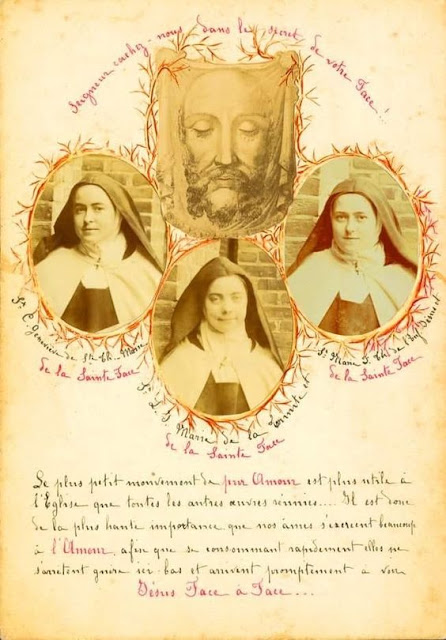 Seigneur, cachez-nous dans le secret de votre Face!..
Sr Geneviève de Ste Th... Marie
de la Sainte Face
Sr Marie de la Trinité et
de la Sainte Face
Sr Marie F. Th. de l'Enf. Jésus
de la Sainte Face
Le plus petit mouvement de pur Amour est plus utile à
l'Eglise que toutes les autres œuvres réunies.... Il est donc
de la plus haute importance que nos âmes s'exercent beaucoup
à l'Amour, afin que se consommant rapidement elles ne
s'arrêtent guère ici-bas et arrivent promptement à voir
Jésus Face à Face...